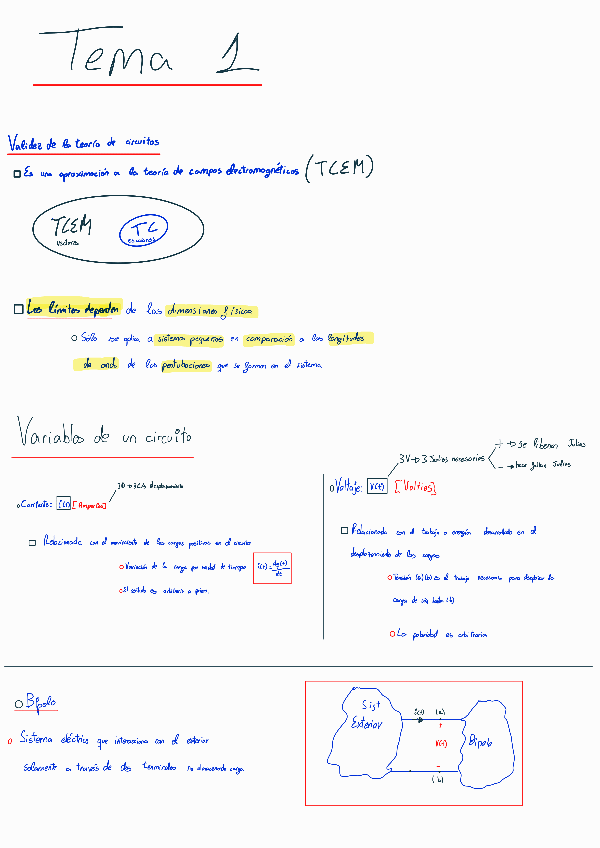 Tema 1
Validez de la teoría de circuitos
Es una aproximación a la teoría de campos electromagnéticos (TCEM)
TCEM TC
vectores escalares
Los límites dependen de las dimensiones físicas
Sólo se aplica a sistemas pequeños en comparación a las longitudes
de onda de las perturbaciones que se forman en el sistema.
Variables de un circuito
Corriente: i(t) [Amperios]
desplazamiento
Relacionada con el movimiento de las cargas positivas en el circuito
Variación de la carga por unidad de tiempo i(t) = dq(t)/dt
El sentido es arbitrario a priori.
3V → 3 Julios necesarios
+ → se liberan Julios
- → Julios
Voltaje: V(t) [Voltios]
Relacionada con el trabajo o energía desarrollada en el
desplazamiento de las cargas
Tensión (a)(b) es el trabajo necesario para desplazar la
carga de
La polaridad es arbitraria
Bipolo
Sistema eléctrico que interacciona con el exterior
solamente a través de dos terminales carga.
Sist
Exterior
i(t) (a)
+
V(t)
-
(b)
Bipolo